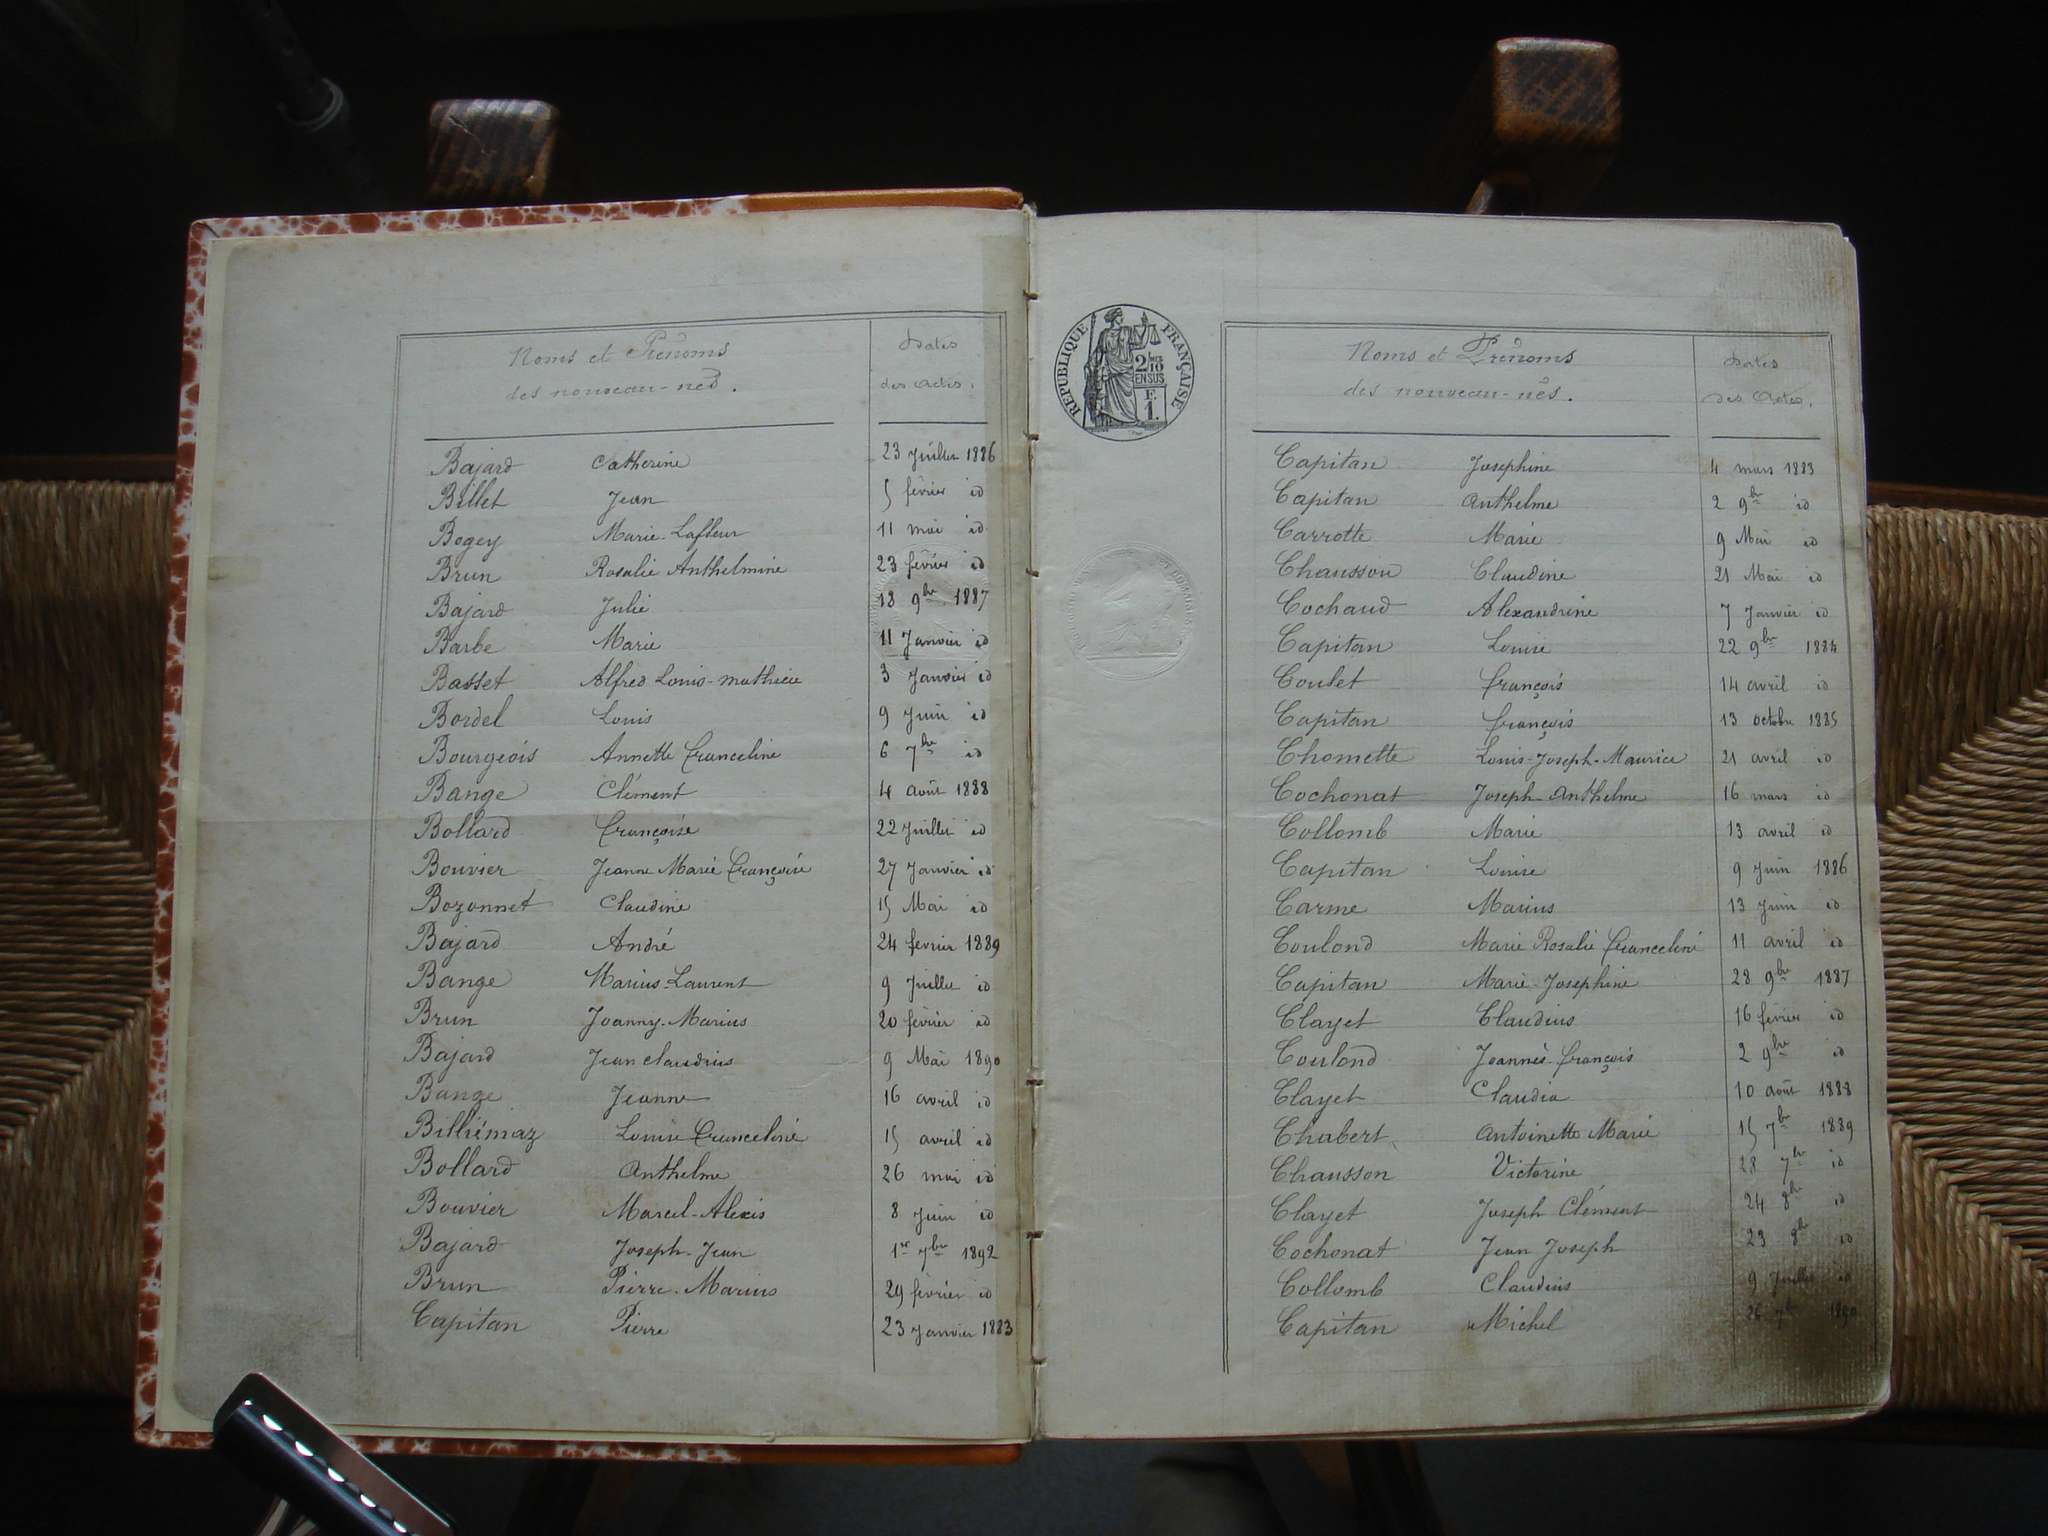 Noms et Prénoms
des nouveau-nés.
Dates
des Actes.
Bajard Catherine 23 Juillet 1886
Billet Jean 5 février id
Bogey Marie-Lafleur 11 mai id
Brun Rosalie Anthelmine 23 février id
Bajard Julie 18 9bre 1887
Barbe Marie 11 Janvier id
Basset Alfred Louis-Mathieu 3 Janvier id
Bordel Louis 9 Juin id
Bourgeois Annette Franceline 6 7bre id
Bange Clément 4 août 1888
Bollard Françoise 22 Juillet id
Bouvier Jeanne Marie Françoise 27 Janvier id
Bozonnet Claudine 15 Mai id
Bajard André 24 février 1889
Bange Marius-Laurent 9 Juillet id
Brun Joanny-Marius 20 février id
Bajard Jean Claudius 9 Mai 1890
Bange Jeanne 16 avril id
Billiémaz Louise Franceline 15 avril id
Bollard Anthelme 26 mai id
Bouvier Marcel-Alexis 8 Juin id
Bajard Joseph-Jean 1er 7bre 1892
Brun Pierre-Marius 29 février id
Capitan Pierre 23 Janvier 1883
RÉPUBLIQUE FRANÇAISE
2/10
EN SUS
F.
1.
Noms et Prénoms
des nouveau-nés.
Dates
des Actes.
Capitan Josephine 4 mars 1883
Capitan Anthelme 2 9bre id
Carrotte Marie 9 Mai id
Chausson Claudine 21 Mai id
Cochaud Alexandrine 7 Janvier id
Capitan Louise 22 9bre 1884
Coulet François 14 avril id
Capitan François 13 octobre 1885
Chomette Louis-Joseph-Maurice 21 avril id
Cochonat Joseph-Anthelme 16 mars id
Collomb Marie 13 avril id
Capitan Louise 9 Juin 1886
Carme Marius 13 Juin id
Coulond Marie Rosalie Franceline 11 avril id
Capitan Marie-Josephine 28 9bre 1887
Clayet Claudius 16 février id
Coulond Joannès-François 2 9bre id
Clayet Claudia 10 août 1888
Chabert Antoinette Marie 15 7bre 1889
Chausson Victorine 28 7bre id
Clayet Joseph Clément 24 8bre id
Cochonat Jean Joseph 23 8bre id
Collomb Claudius 9 Juillet id
Capitan Michel 26 7bre 1890